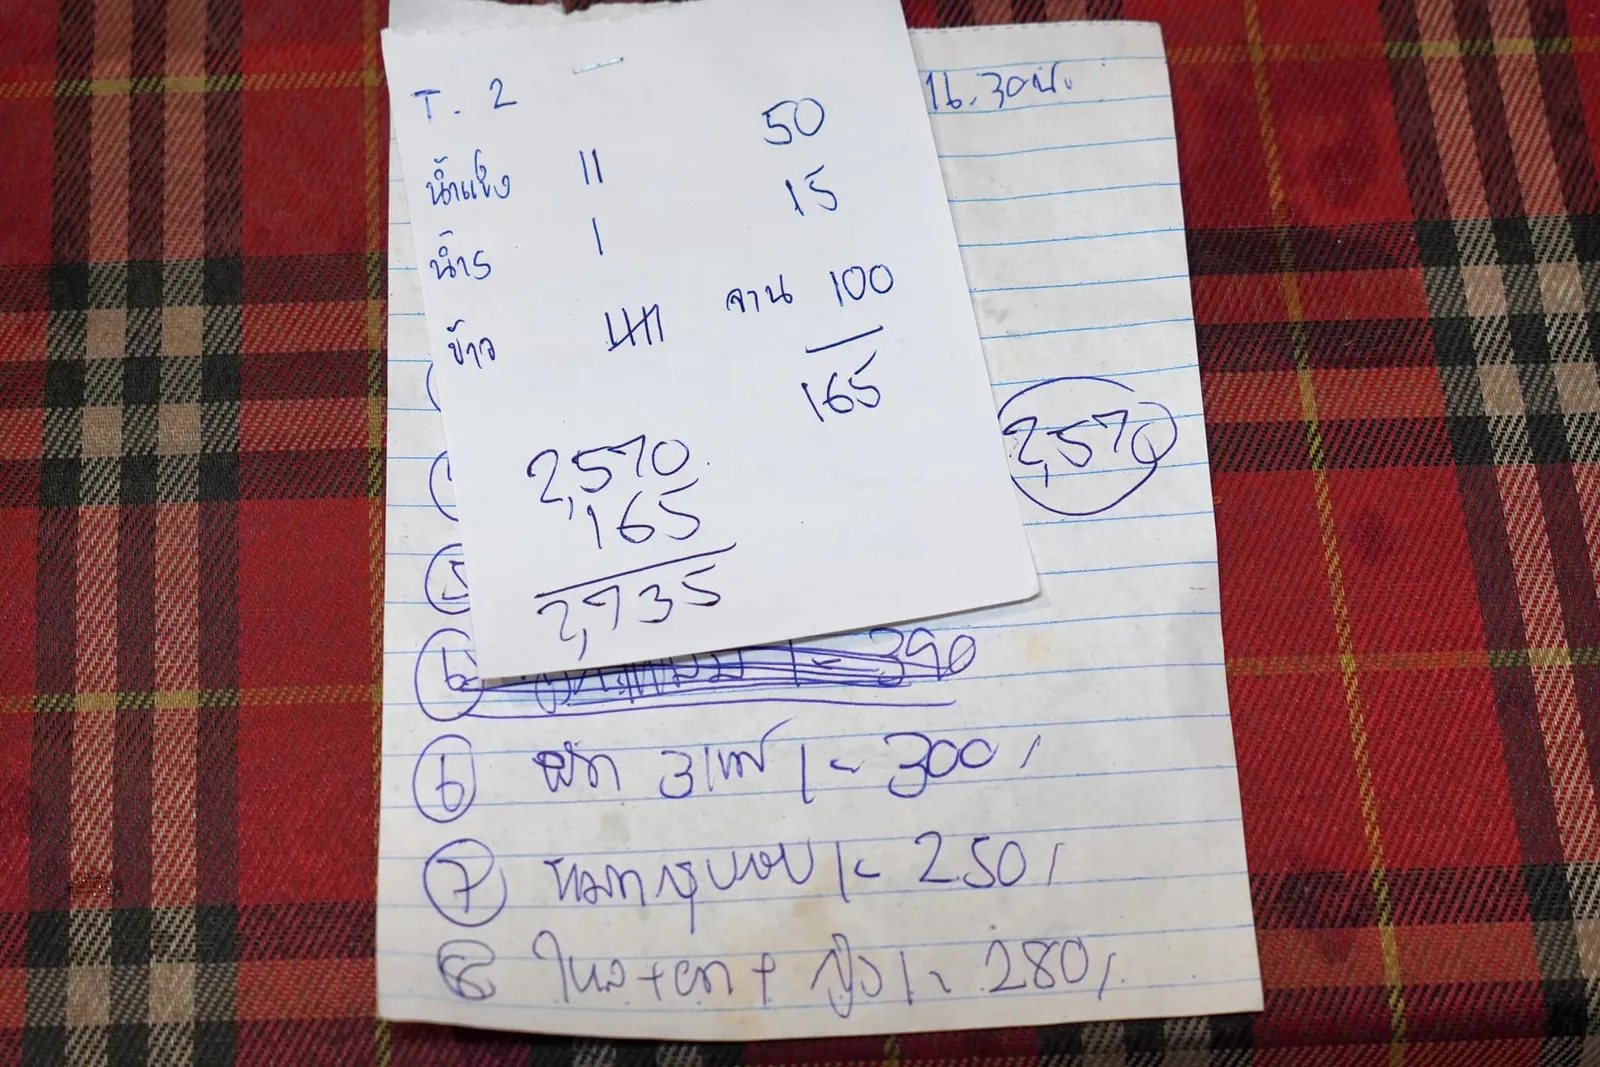 T. 2
น้ำแข็ง 11 50
น้ำร 1 15
ข้าว จาน 100
165
2,570
165
2,735
16.30 น.
2,570
5
6 1 - 390
6 ผัด 3 1 - 300 /
7 หมึกชุบ 1 - 250 /
8 ใหล + + 1 - 280 /